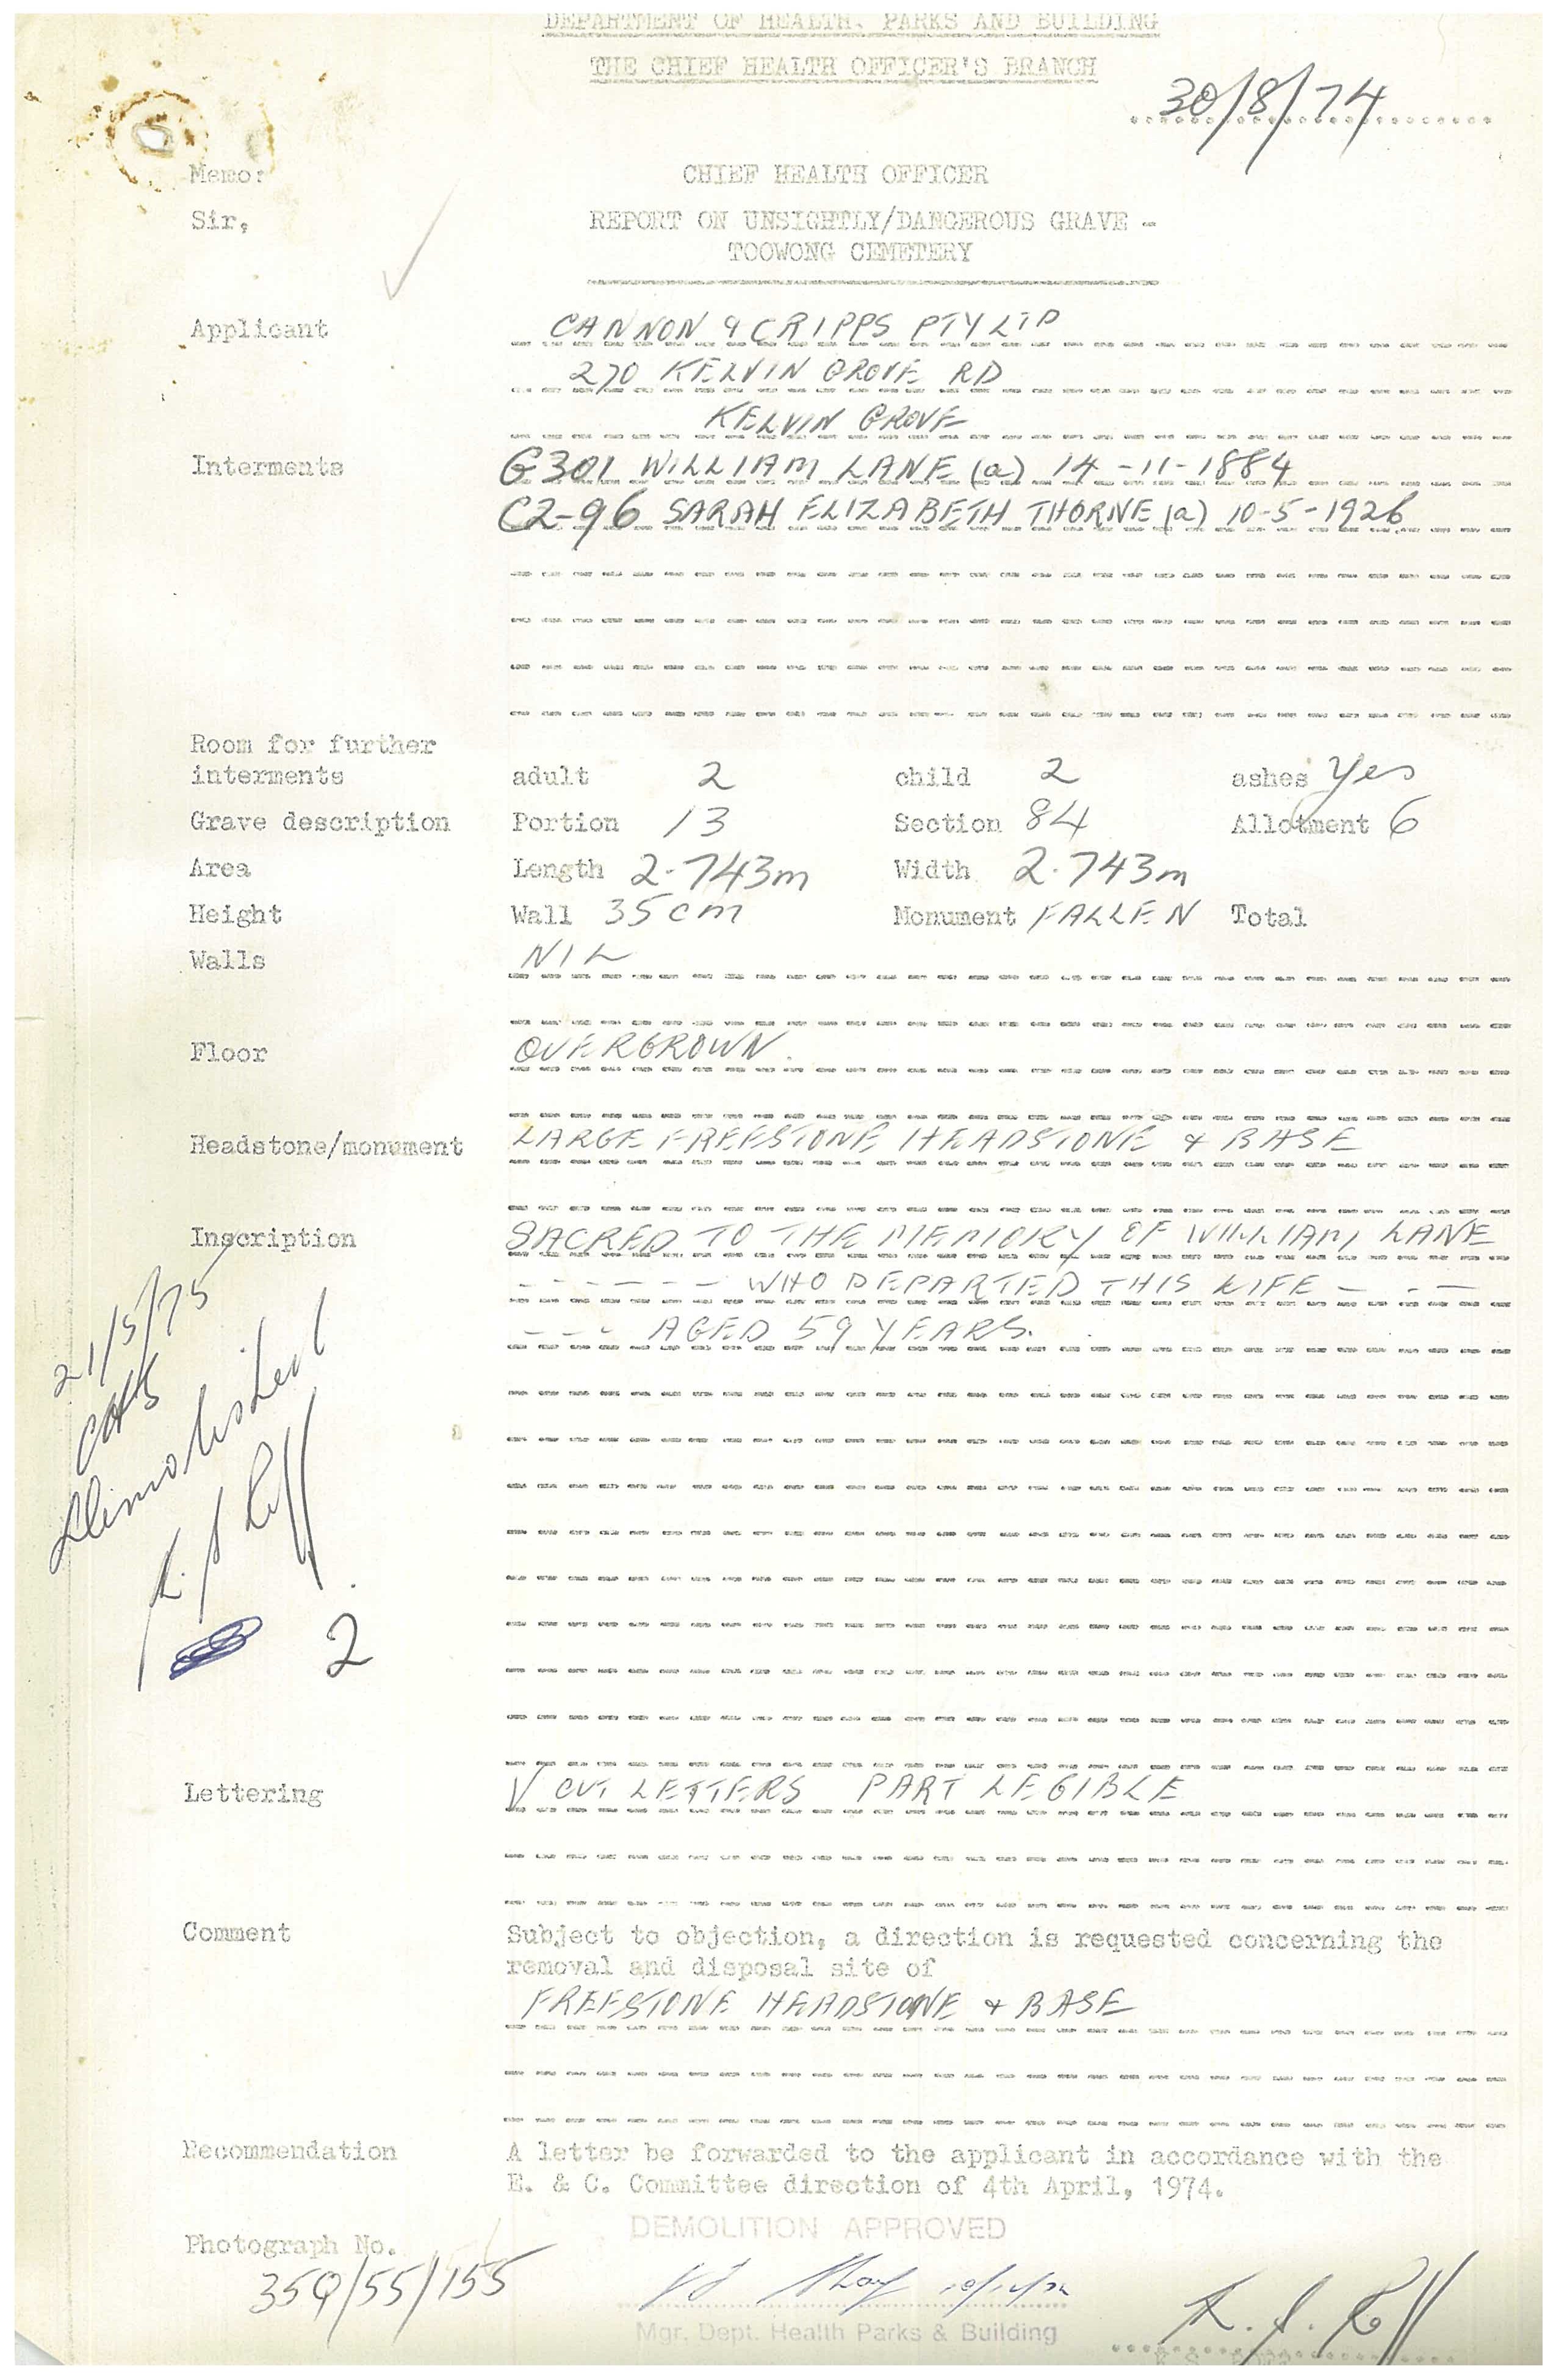 DEPARTMENT OF HEALTH, PARKS AND BUILDING
THE CHIEF HEALTH OFFICER'S BRANCH
30/8/74
Memo: CHIEF HEALTH OFFICER
Sir, REPORT ON UNSIGHTLY/DANGEROUS GRAVE -
TOOWONG CEMETERY
Applicant CANNON & CRIPPS PTY LTD
270 KELVIN GROVE RD
KELVIN GROVE
Interments G301 WILLIAM LANE (a) 14-11-1884
C2-96 SARAH ELIZABETH THORNE (a) 10-5-1926
Room for further
interments adult 2 child 2 ashes Yes
Grave description Portion 13 Section 84 Allotment 6
Area Length 2.743m Width 2.743m
Height Wall 35cm Monument FALLEN Total
Walls NIL
Floor OVERGROWN.
Headstone/monument LARGE FREESTONE HEADSTONE & BASE
Inscription SACRED TO THE MEMORY OF WILLIAM LANE
- - - - - - - WHO DEPARTED THIS LIFE - - -
- - - AGED 59 YEARS.
21/5/75
CHS
Demolished
2
Lettering V CUT LETTERS PART LEGIBLE
Comment Subject to objection, a direction is requested concerning the
removal and disposal site of
FREESTONE HEADSTONE & BASE
Recommendation A letter be forwarded to the applicant in accordance with the
E. & C. Committee direction of 4th April, 1974.
DEMOLITION APPROVED
Photograph No.
35Q/55/155
Mgr. Dept. Health Parks & Building